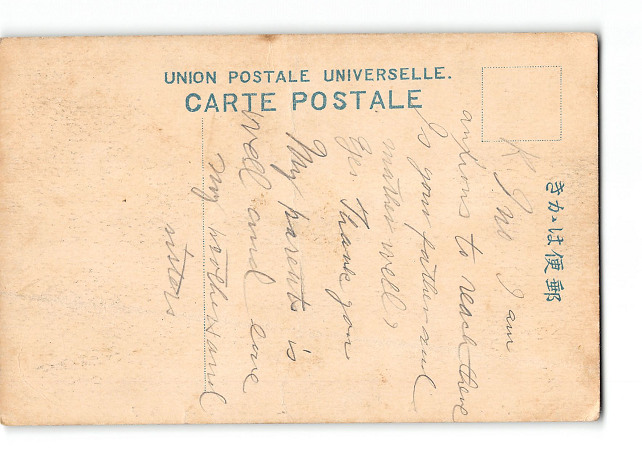 UNION POSTALE UNIVERSELLE.
CARTE POSTALE
きかは便郵
I am
anxious to reach there
Is your father and
mother well?
Yes Thank you
My parents is
well and
my brothers and
sisters